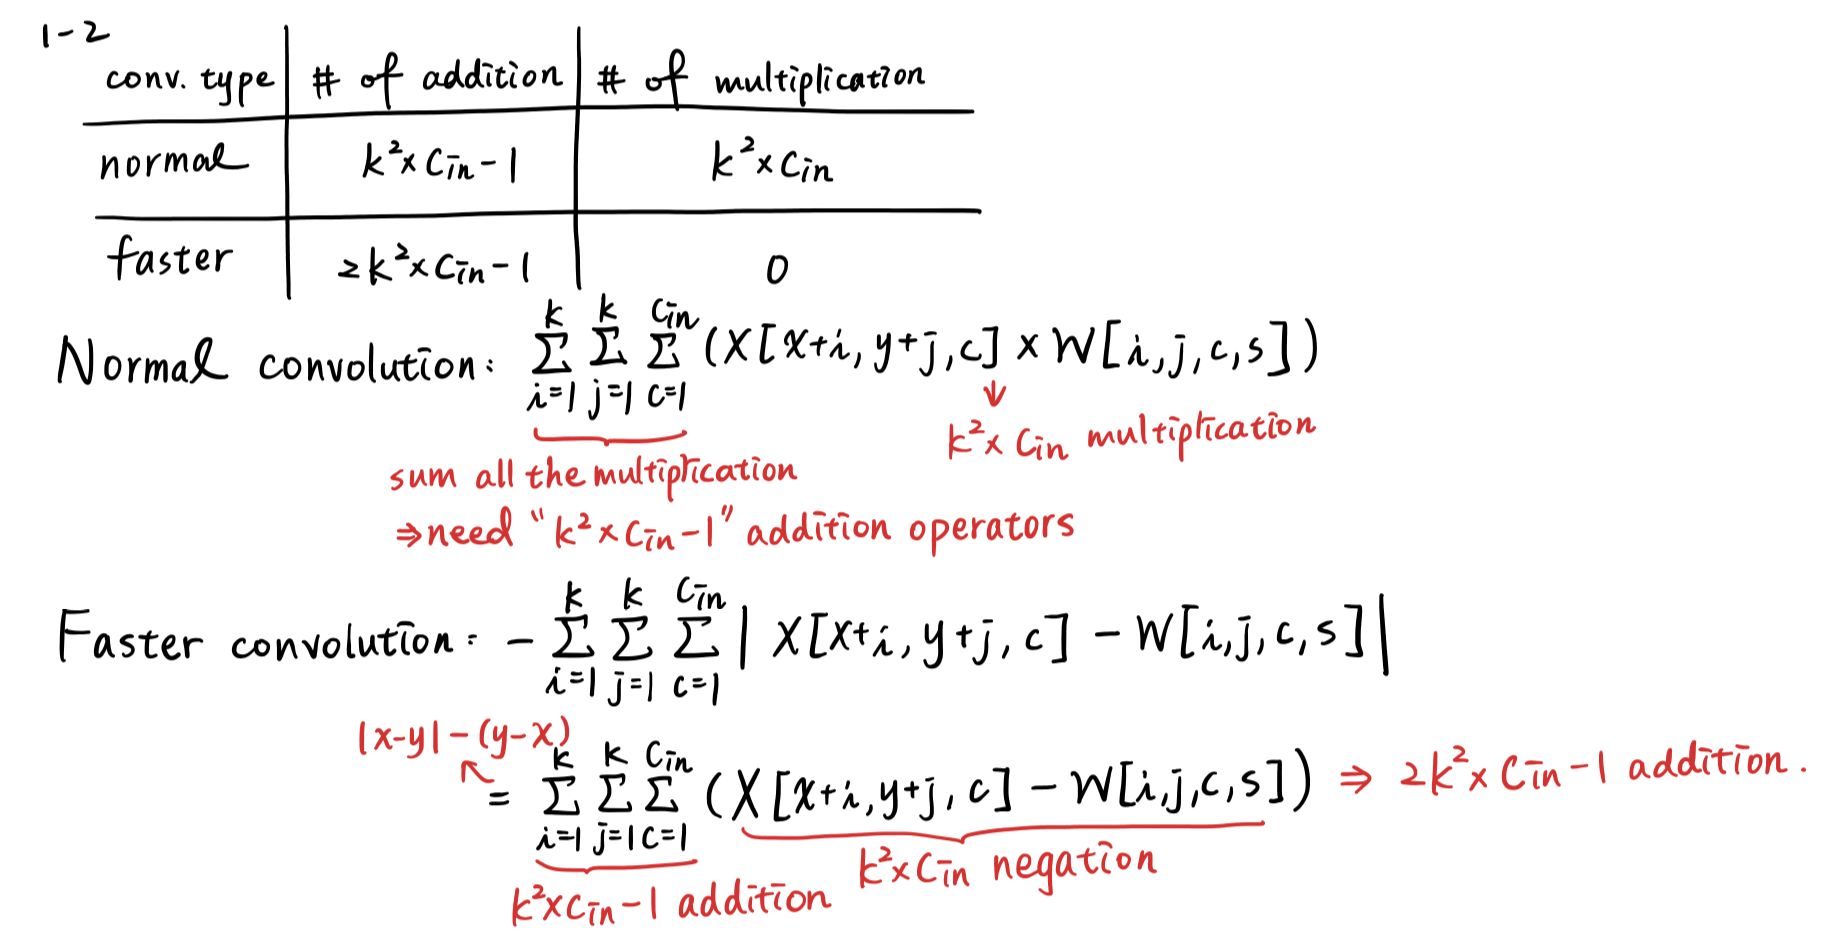 1-2
conv. type # of addition # of multiplication
normal k²×Cin-1 k²×Cin
faster 2k²×Cin-1 0
Normal convolution: Σ_{i=1}^{k} Σ_{j=1}^{k} Σ_{c=1}^{Cin} (X[x+i, y+j, c] × W[i, j, c, s])
↓
k²× Cin multiplication
sum all the multiplication
⇒ need "k²×Cin-1" addition operators
Faster convolution: - Σ_{i=1}^{k} Σ_{j=1}^{k} Σ_{c=1}^{Cin} | X[x+i, y+j, c] - W[i, j, c, s] |
|x-y| - (y-x)
↖
= Σ_{i=1}^{k} Σ_{j=1}^{k} Σ_{c=1}^{Cin} (X[x+i, y+j, c] - W[i, j, c, s]) ⇒ 2k²× Cin-1 addition.
k²×Cin negation
k²×Cin-1 addition